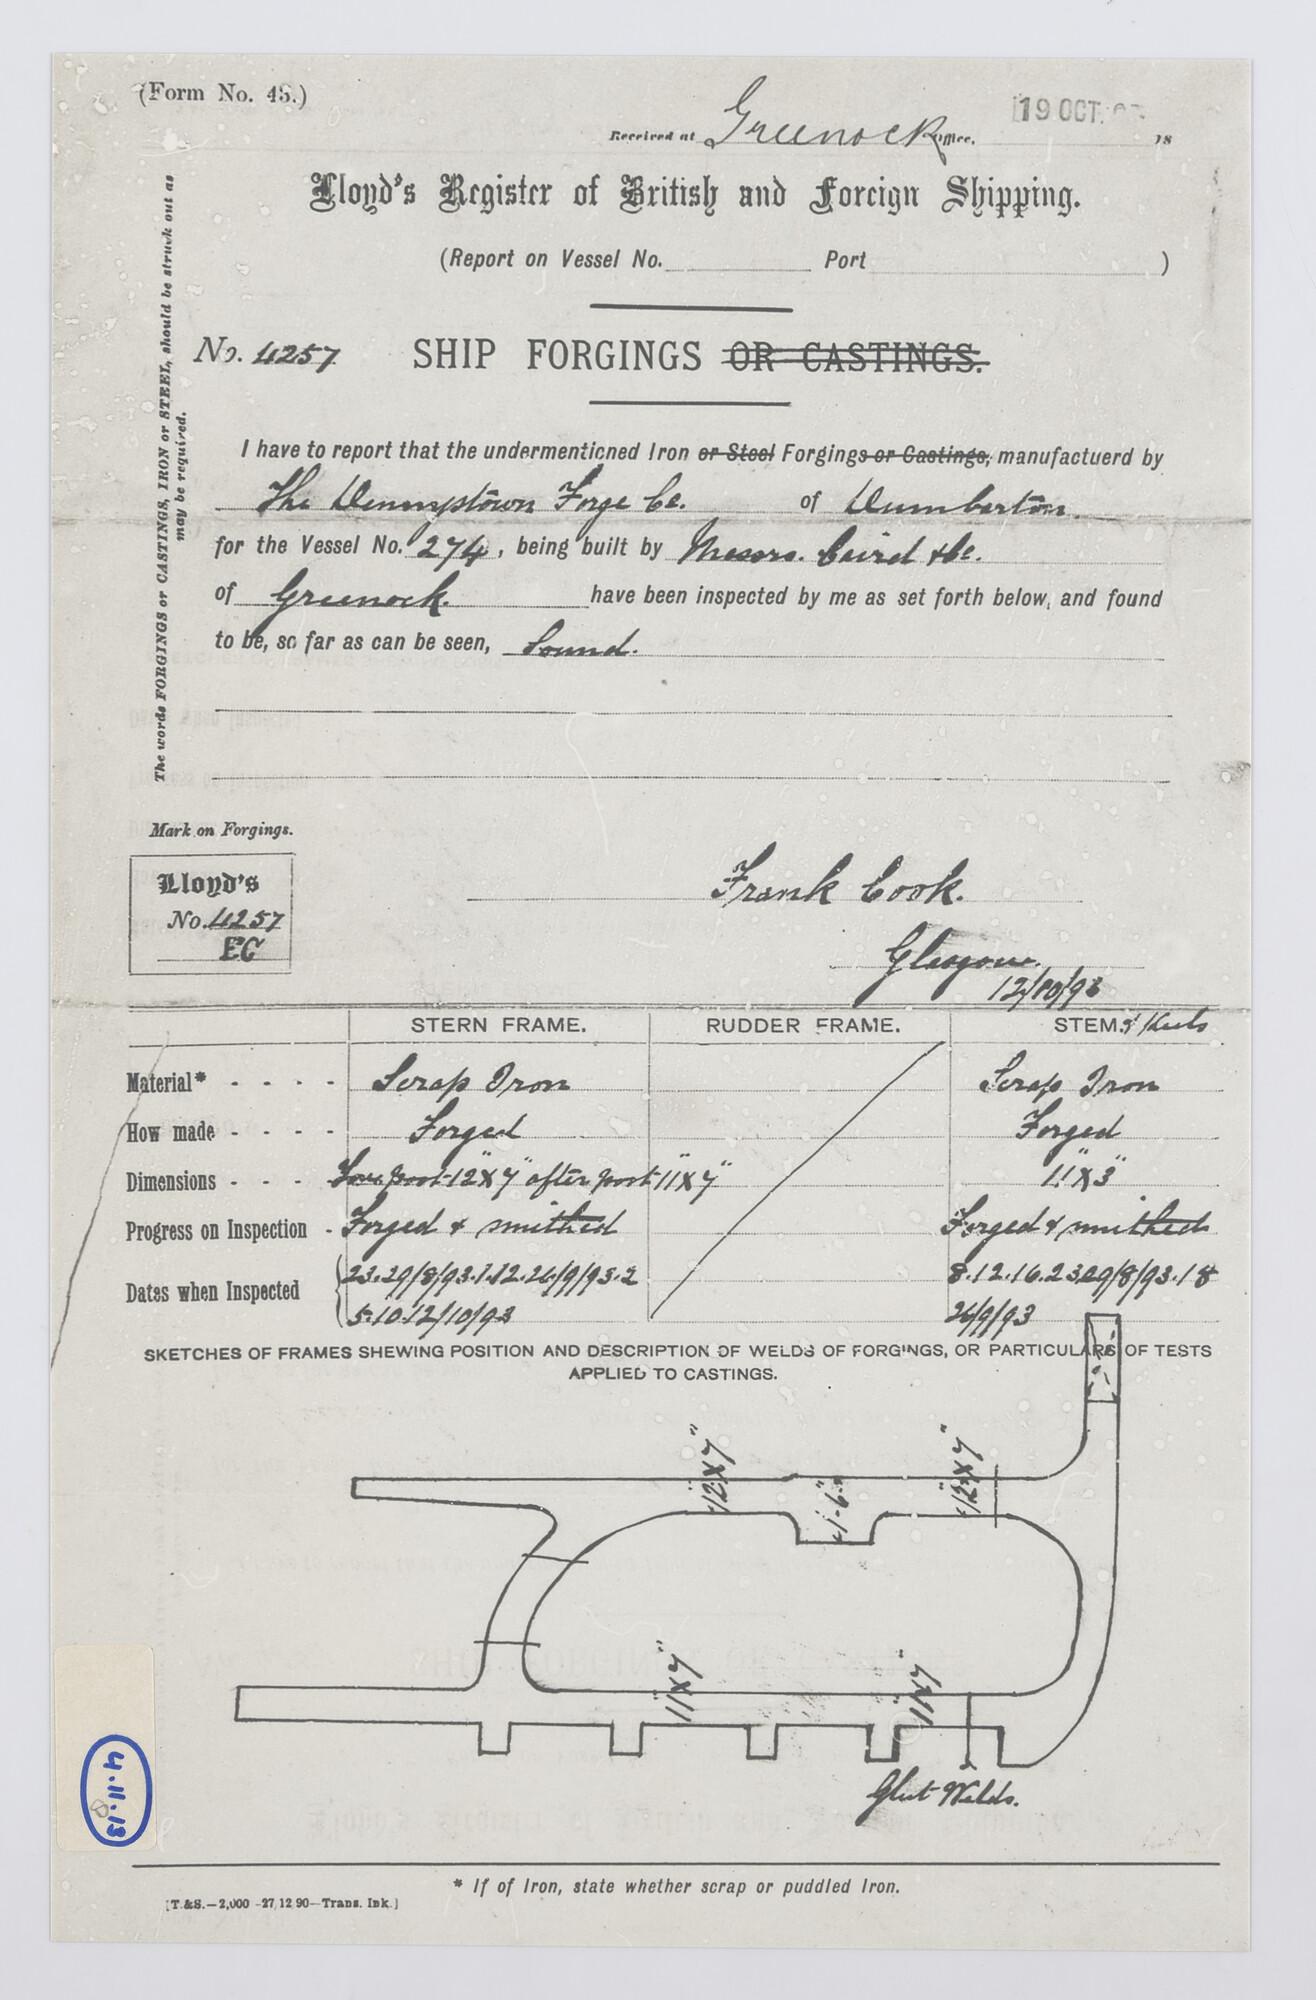 (Form No. 45.)
Received at Greenock Office. 19 OCT. 18
Lloyd's Register of British and Foreign Shipping.
(Report on Vessel No. Port )
The words FORGINGS or CASTINGS, IRON or STEEL, should be struck out as
may be required.
No. 4257 SHIP FORGINGS OR CASTINGS.
I have to report that the undermentioned Iron or Steel Forgings or Castings, manufactuerd by
The Dennystown Forge Co. of Dumbarton.
for the Vessel No. 274, being built by Messrs. Caird & Co.
of Greenock. have been inspected by me as set forth below, and found
to be, so far as can be seen, Sound.
Mark on Forgings.
Lloyd's
No. 4257
Frank Cook.
Glasgow.
12/10/93
STERN FRAME. RUDDER FRAME. STEM. & Keels
Material* - - - - Scrap Iron Scrap Iron
How made - - - - Forged Forged
Dimensions - - - Fore post 12"x7" after post 11"x7" 11"x3"
Progress on Inspection - Forged & smithed Forged & smithed
Dates when Inspected 23.29/8/93.1.12.26/9/93.2 8.12.16.23.29/8/93.18
5.10.12/10/93 26/9/93
SKETCHES OF FRAMES SHEWING POSITION AND DESCRIPTION OF WELDS OF FORGINGS, OR PARTICULARS OF TESTS
APPLIED TO CASTINGS.
12"x7" 1-6" 12"x7"
11"x7" 11"x7"
Glut Welds.
* If of Iron, state whether scrap or puddled Iron.
[T.&S.—2,000 -27,12 90—Trans. Ink.]